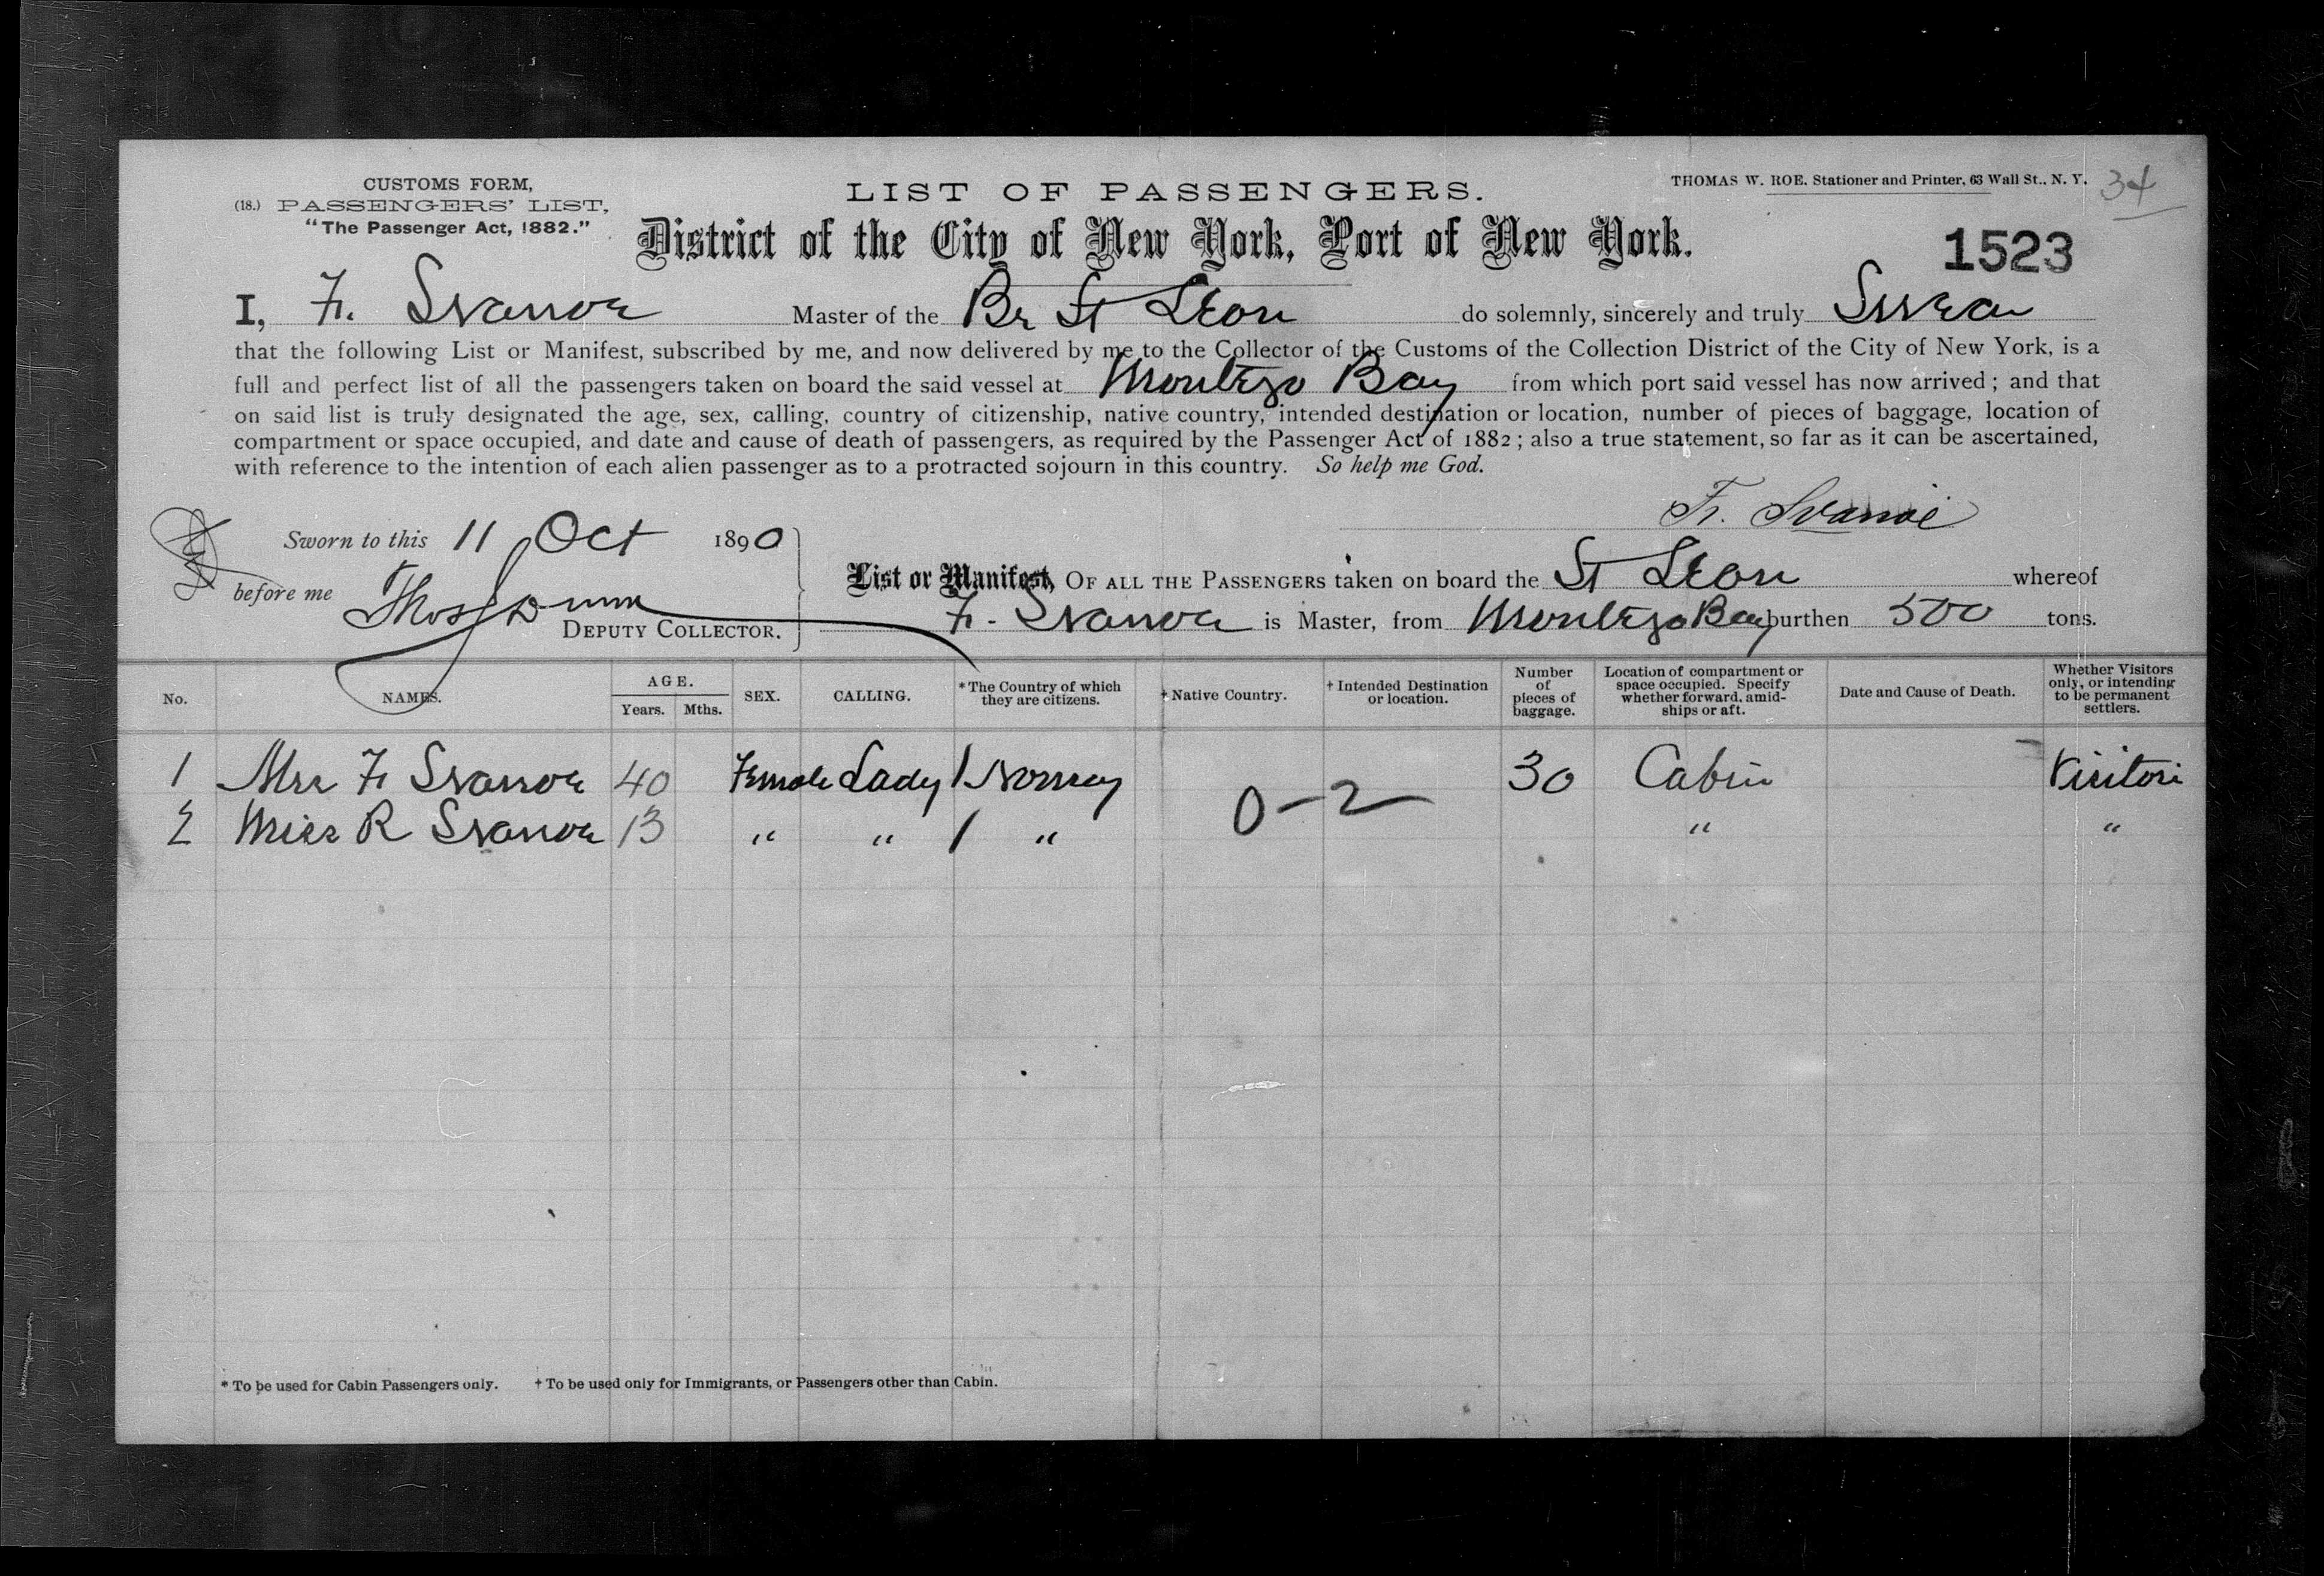 CUSTOMS FORM,
(18.) PASSENGERS' LIST,
"The Passenger Act, 1882."
LIST OF PASSENGERS.
THOMAS W. ROE. Stationer and Printer, 63 Wall St., N. Y.
34
District of the City of New York, Port of New York.
1523
I, F. Svanoe Master of the Br St Leon do solemnly, sincerely and truly Swear
that the following List or Manifest, subscribed by me, and now delivered by me to the Collector of the Customs of the Collection District of the City of New York, is a
full and perfect list of all the passengers taken on board the said vessel at Montego Bay from which port said vessel has now arrived; and that
on said list is truly designated the age, sex, calling, country of citizenship, native country, intended destination or location, number of pieces of baggage, location of
compartment or space occupied, and date and cause of death of passengers, as required by the Passenger Act of 1882; also a true statement, so far as it can be ascertained,
with reference to the intention of each alien passenger as to a protracted sojourn in this country. So help me God.
Fr. Svanoe
Sworn to this 11 Oct 1890
before me Thos Dunn
DEPUTY COLLECTOR.
List or Manifest, OF ALL THE PASSENGERS taken on board the St Leon whereof
F. Svanoe is Master, from Montego Bay burthen 500 tons.
No. NAMES. AGE. Years. Mths. SEX. CALLING. *The Country of which they are citizens. †Native Country. †Intended Destination or location. Number of pieces of baggage. Location of compartment or space occupied. Specify whether forward, amidships or aft. Date and Cause of Death. Whether Visitors only, or intending to be permanent settlers.
1 Mrs F Svanoe 40 Female Lady / Norway 30 Cabin Visitors
0-2
2 Miss R Svanoe 13 " " / " " "
* To be used for Cabin Passengers only. † To be used only for Immigrants, or Passengers other than Cabin.